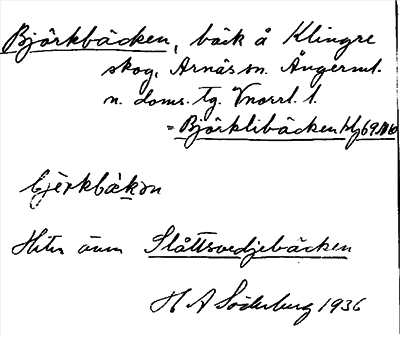 Björkbäcken, bäck å Klingre
skog, Arnäs sn. Ångerml.
n. doms. tg. Vnorrl. l.
= Björklibäcken blj 69
bjèrkbäkən
Heter även Slåttsvedjebäcken
H A Söderburg 1936